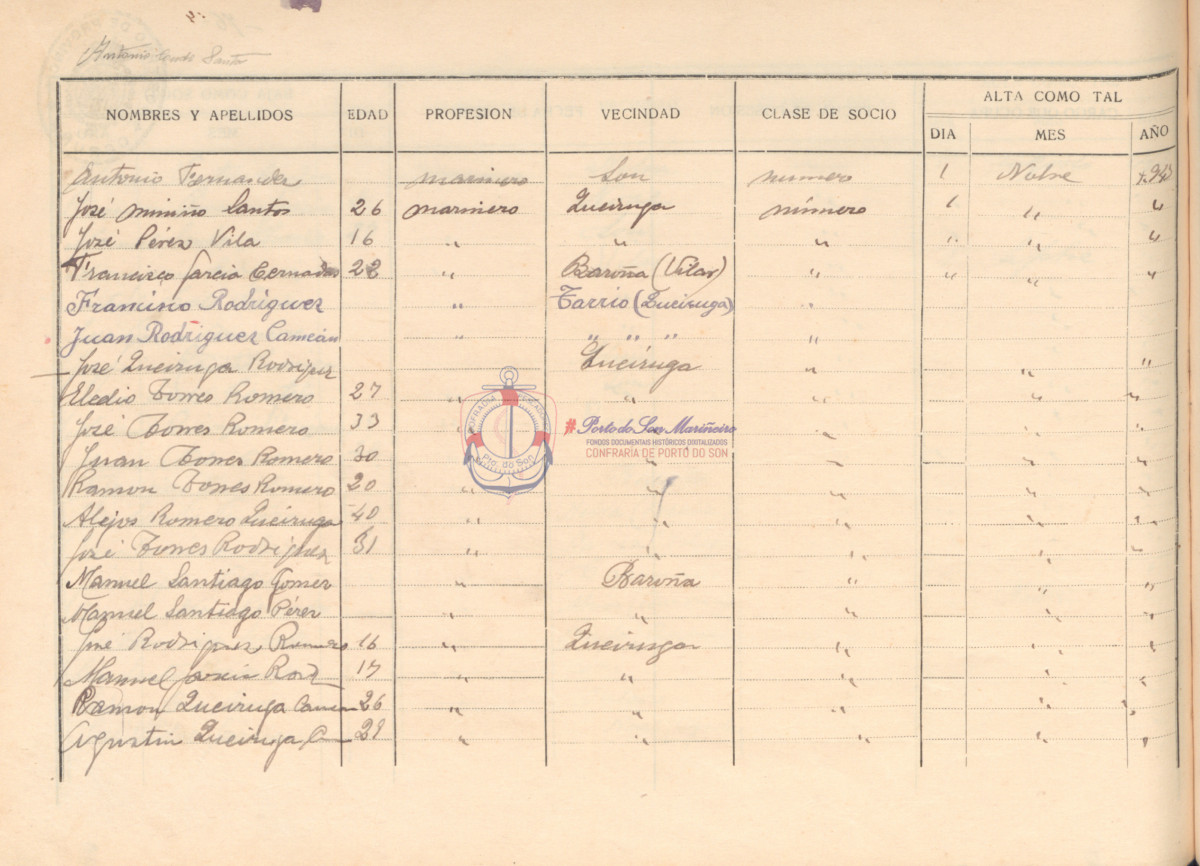 Antonio Conde Santos
NOMBRES Y APELLIDOS EDAD PROFESION VECINDAD CLASE DE SOCIO ALTA COMO TAL
DIA MES AÑO
Antonio Fernandez marinero Son numero 1 Nobre 1.943
José Miniño Santos 26 marinero Queiruga número 1 " "
José Pérez Vila 16 " " " " " "
Francisco García Cernadas 22 " Baroña (Vilar) " " " "
Francisco Rodriguez " Tarrio (Queiruga) "
Juan Rodriguez Cameán " " " " "
José Queiruga Rodriguez Queiruga " " "
Eledio Torres Romero 27 " " " " "
José Torres Romero 33 " " " "
Juan Torres Romero 30 " " " "
Ramon Torres Romero 20 " " " " "
Alejos Romero Queiruga 40 " " " " "
José Torres Rodriguez 31 " " " " "
Manuel Santiago Gomez " Baroña " " "
Manuel Santiago Pérez " " " " "
José Rodriguez Romero 16 " Queiruga " " "
Manuel García 17 " " " " "
Ramon Queiruga 26 " " " " "
Agustin Queiruga 29 " " " " "
COFRADIA PESCADORES
Pto. do Son
#Porto do Son Mariñeiro
FONDOS DOCUMENTAIS HISTÓRICOS DIXITALIZADOS
CONFRARÍA DE PORTO DO SON